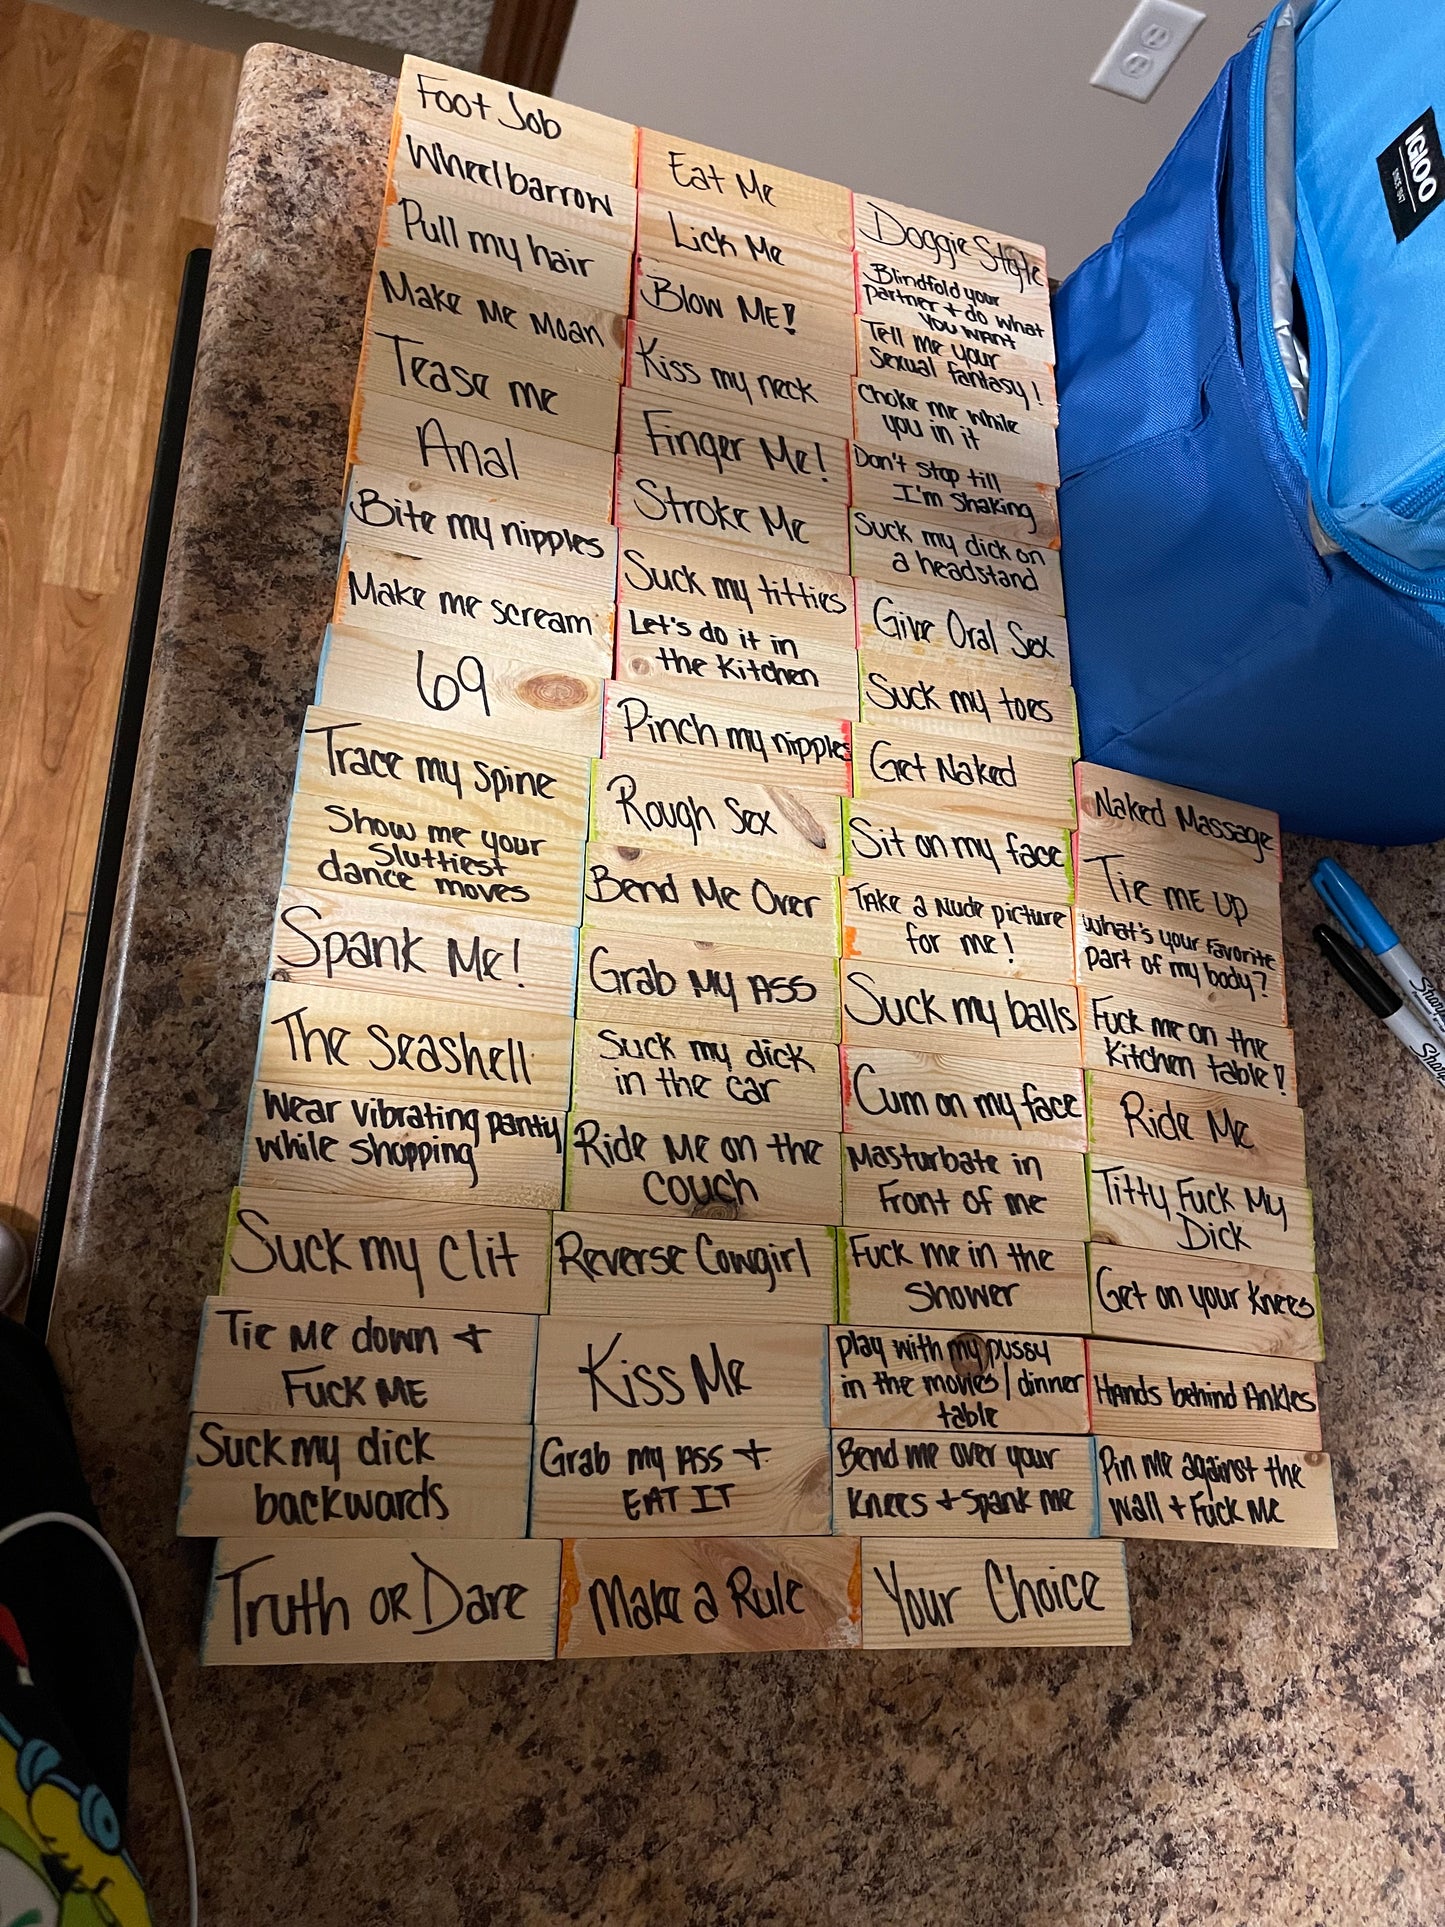 Foot Job
Wheelbarrow
Pull my hair
Make Me Moan
Tease me
Anal
Bite my nipples
Make me scream
69
Trace my spine
Show me your
sluttiest
dance moves
Spank Me!
The Seashell
Wear vibrating panty
while shopping
Suck my clit
Tie Me down +
Fuck ME
Suck my dick
backwards
Truth OR Dare
Eat Me
Lick Me
Blow ME!
Kiss my neck
Finger Me!
Stroke Me
Suck my titties
Let's do it in
the Kitchen
Pinch my nipples
Rough Sex
Bend Me Over
Grab My ASS
Suck my dick
in the car
Ride Me on the
couch
Reverse Cowgirl
Kiss Me
Grab my Ass +
EAT IT
Make a Rule
Doggie Style
Blindfold your
partner + do what
YOU WANT
Tell me your
Sexual fantasy!
Choke me while
you in it
Don't stop till
I'm shaking
Suck my dick on
a headstand
Give Oral Sex
Suck my toes
Get Naked
Sit on my face
TAKE a Nude picture
for me!
Suck my balls
Cum on my face
Masturbate in
Front of me
Fuck me in the
shower
play with my pussy
in the movies/dinner
table
Bend me over your
knees + spank me
Your Choice
Naked Massage
Tie ME UP
What's your Favorite
part of my body?
Fuck me on the
Kitchen table!
Ride Me
Titty Fuck My
Dick
Get on your knees
Hands behind Ankles
Pin Me against the
wall + Fuck Me
IGLOO
SINCE 1947
Sharpie
Sharpie